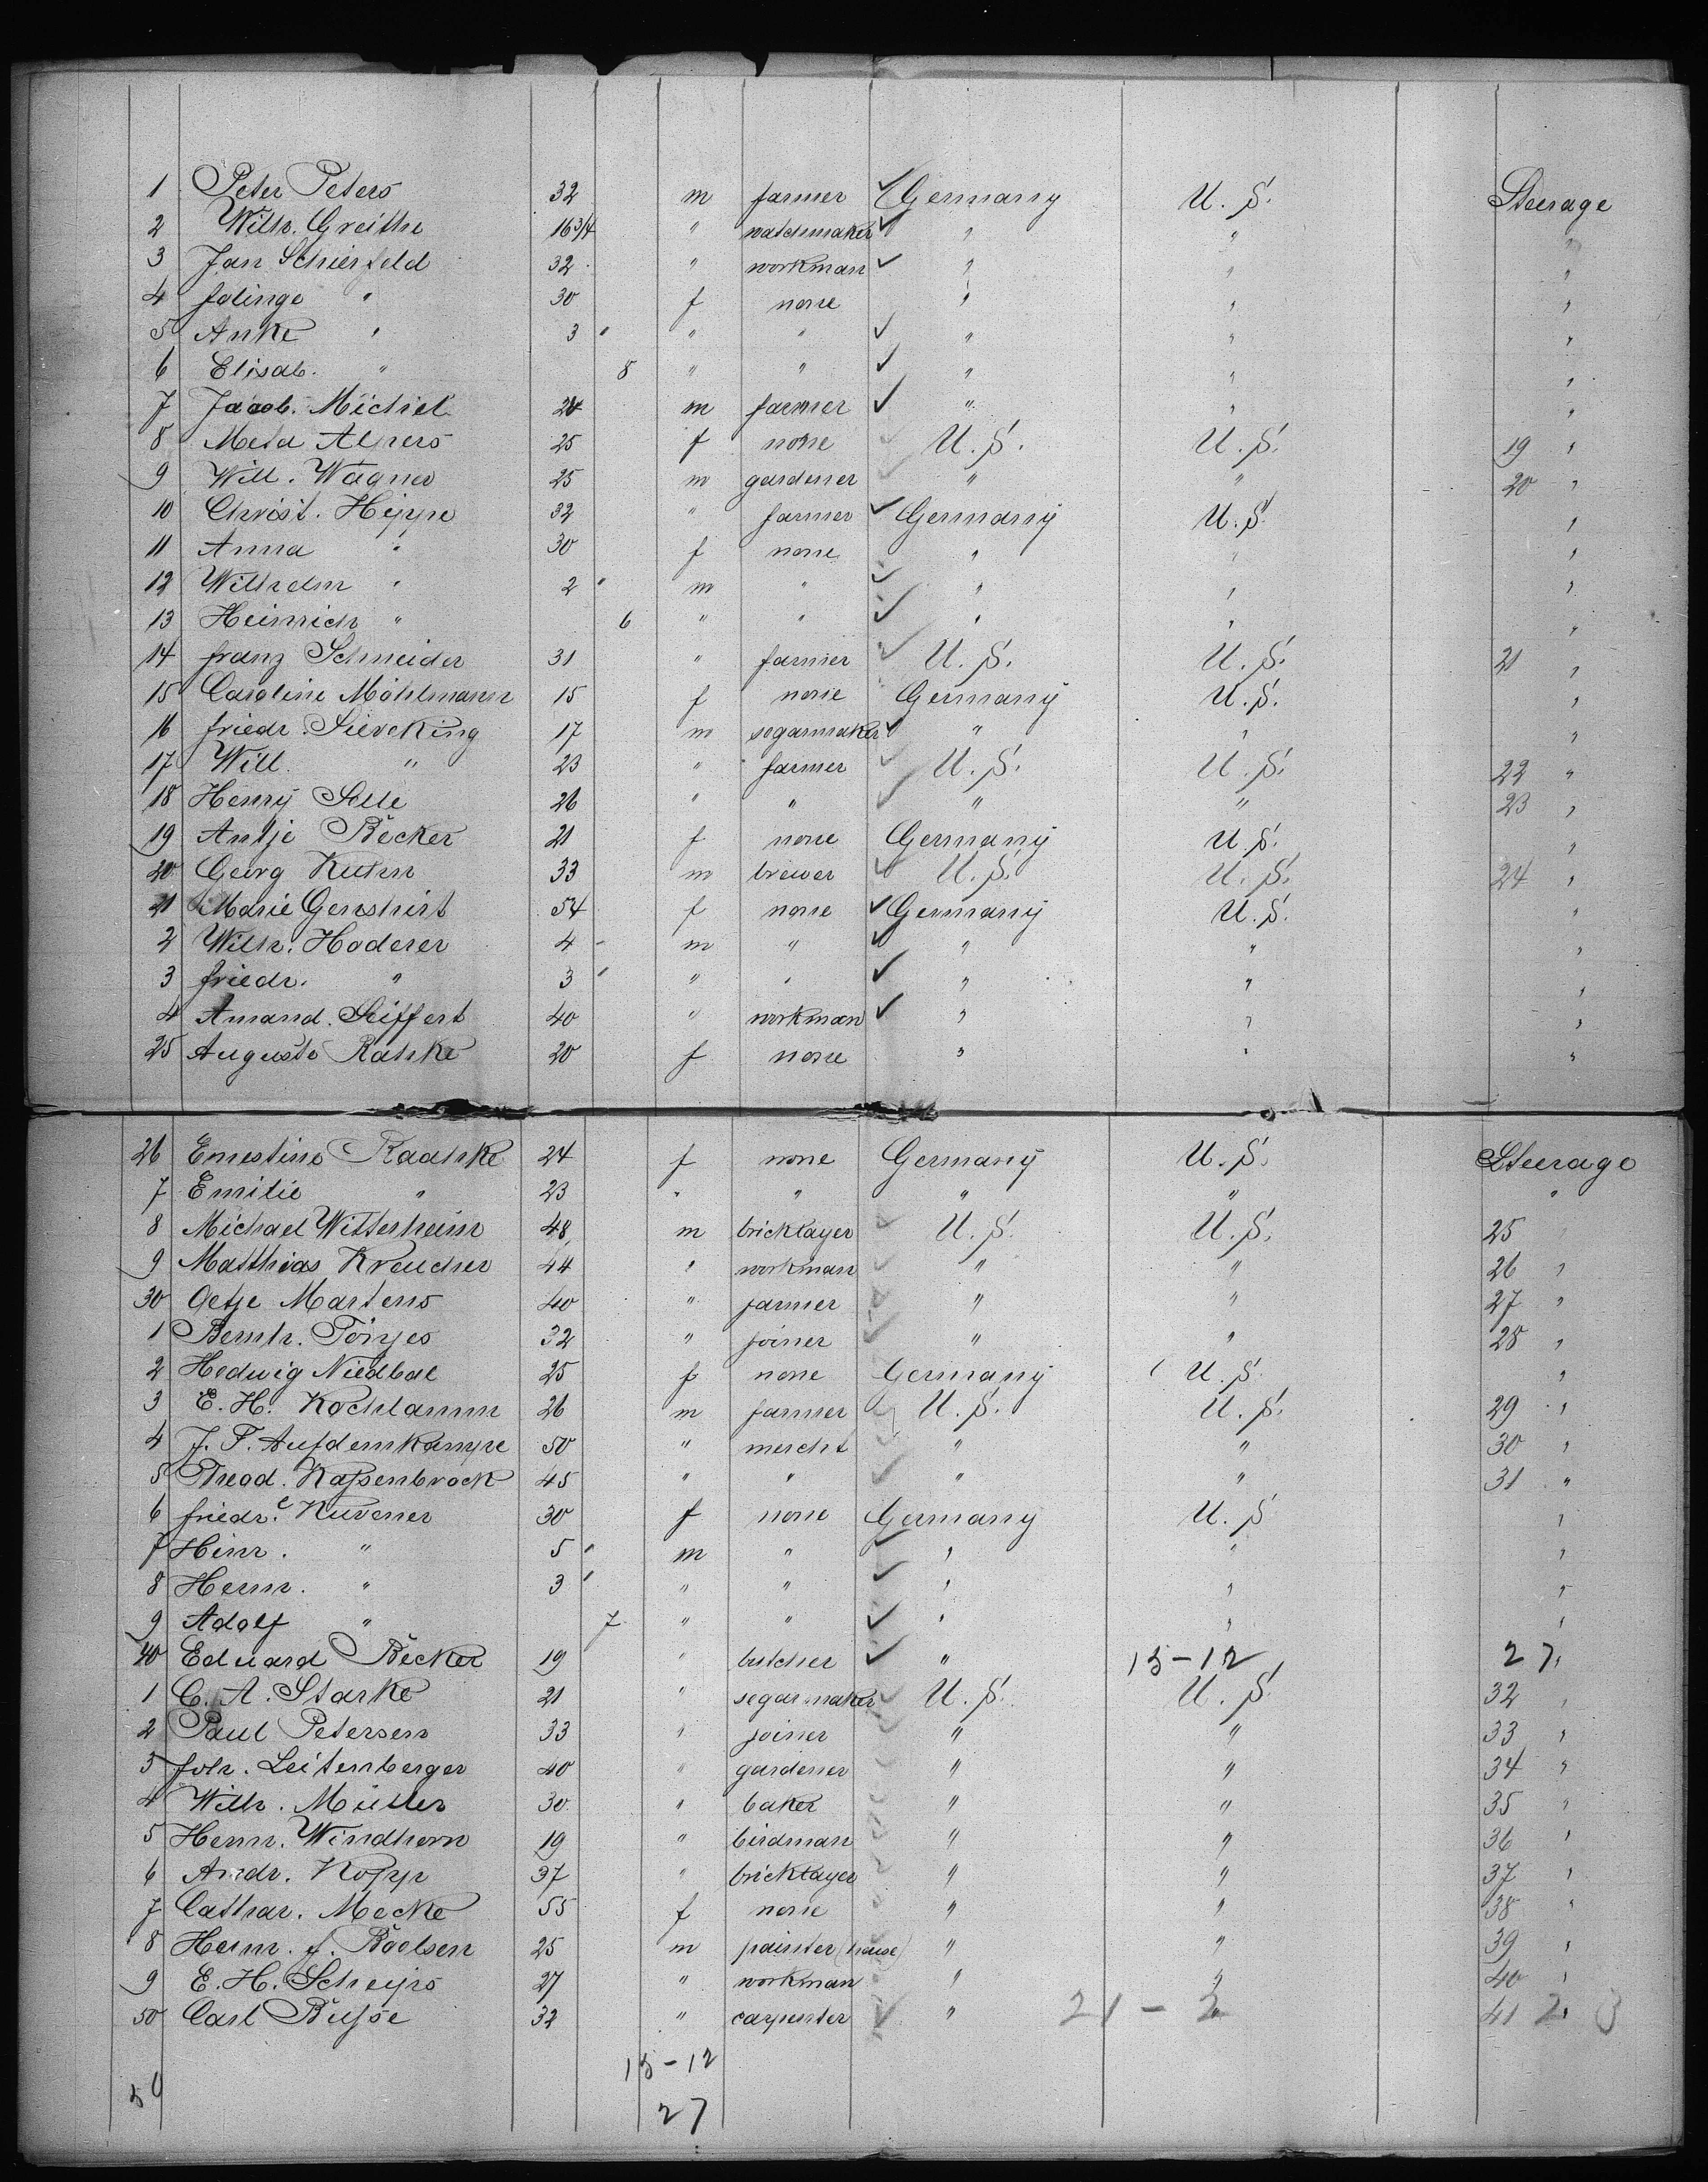 1 Peter Peters 32 m farmer ✓ Germany U. S. Steerage
2 Wilh. Greithe 16 3/4 " watchmaker ✓ " " "
3 Jan Schierfeld 32 " workman ✓ " " "
4 " 30 f none " " "
5 Anke " 3 " " ✓ " " "
6 Elisab. " 8 " " ✓ " " "
7 Jacob. Michiel 24 m farmer ✓ " " "
8 Meta Alpers 25 f none U. S. U. S. 19 "
9 Will. Wagner 25 m gardener " " 20 "
10 Christ. Heppe 32 " farmer ✓ Germany U. S. "
11 Anna " 30 f none " " "
12 Wilhelm " 2 m " ✓ " " "
13 Heinrich " 6 " " ✓ " " "
14 franz Schneider 31 " farmer ✓ U. S. U. S. 21 "
15 Caroline Möhlmann 15 f none Germany U. S. "
16 friedr. Sieveking 17 m segarmaker ✓ " " "
17 Will. " 23 " farmer ✓ U. S. U. S. 22 "
18 Henry Selle 26 " " ✓ " " 23 "
19 Antje Becker 21 f none Germany U. S. "
20 Georg Kuhn 33 m brewer ✓ U. S. U. S. 24 "
21 Marie Genshirt 54 f none ✓ Germany U. S. "
2 Wilh. Haderer 4 - m " ✓ " " "
3 friedr. " 3 " " ✓ " " "
4 Amand. Seiffert 40 " workman ✓ " " "
25 Auguste Rathke 20 f none " " "
26 Ernestine Raathke 24 f none Germany U. S. Steerage
7 Emilie " 23 " " " " "
8 Michael Witterheim 48 m bricklayer ✓ U. S. U. S. 25
9 Matthias Kreucher 44 " workman " " 26 "
30 Oetje Martens 40 " farmer " " 27 "
1 Bernh. Tönjes 32 " joiner ✓ " " 28 "
2 Hedwig Niedbal 25 f none Germany U. S. "
3 E. H. Kochlamm 26 m farmer U. S. U. S. 29 "
4 J. F. Aufdemkampe 50 " mercht " " 30 "
5 Thead. Kassenbrock 45 " " ✓ " " 31 "
6 friedr.e Kuvener 30 f none Germany U. S. "
7 Hinr. " 5 m " ✓ " " "
8 Herm. " 3 " " ✓ " " "
9 Adolf " 7 " " ✓ " " "
40 Eduard Becker 19 " butcher ✓ " 15-12 27
1 C. A. Starke 21 " segarmaker ✓ U. S. U. S. 32 "
2 Paul Petersen 33 " joiner " " 33 "
3 Joh. Leitenberger 40 " gardener " " 34 "
4 Wilh. Müller 30 " baker " " 35 "
5 Herm. Windhorn 19 " birdman " " 36 "
6 Andr. Kopp 37 " bricklayer " " 37 "
7 Cathar. Mecke 55 f none " " 38 "
8 Herm. f. Boelsen 25 m painter (house) " " 39 "
9 E. H. Scheips 27 " workman " " 40 "
50 Carl Busse 32 " carpenter ✓ " 21 - 2 41 2 3
15-12
27